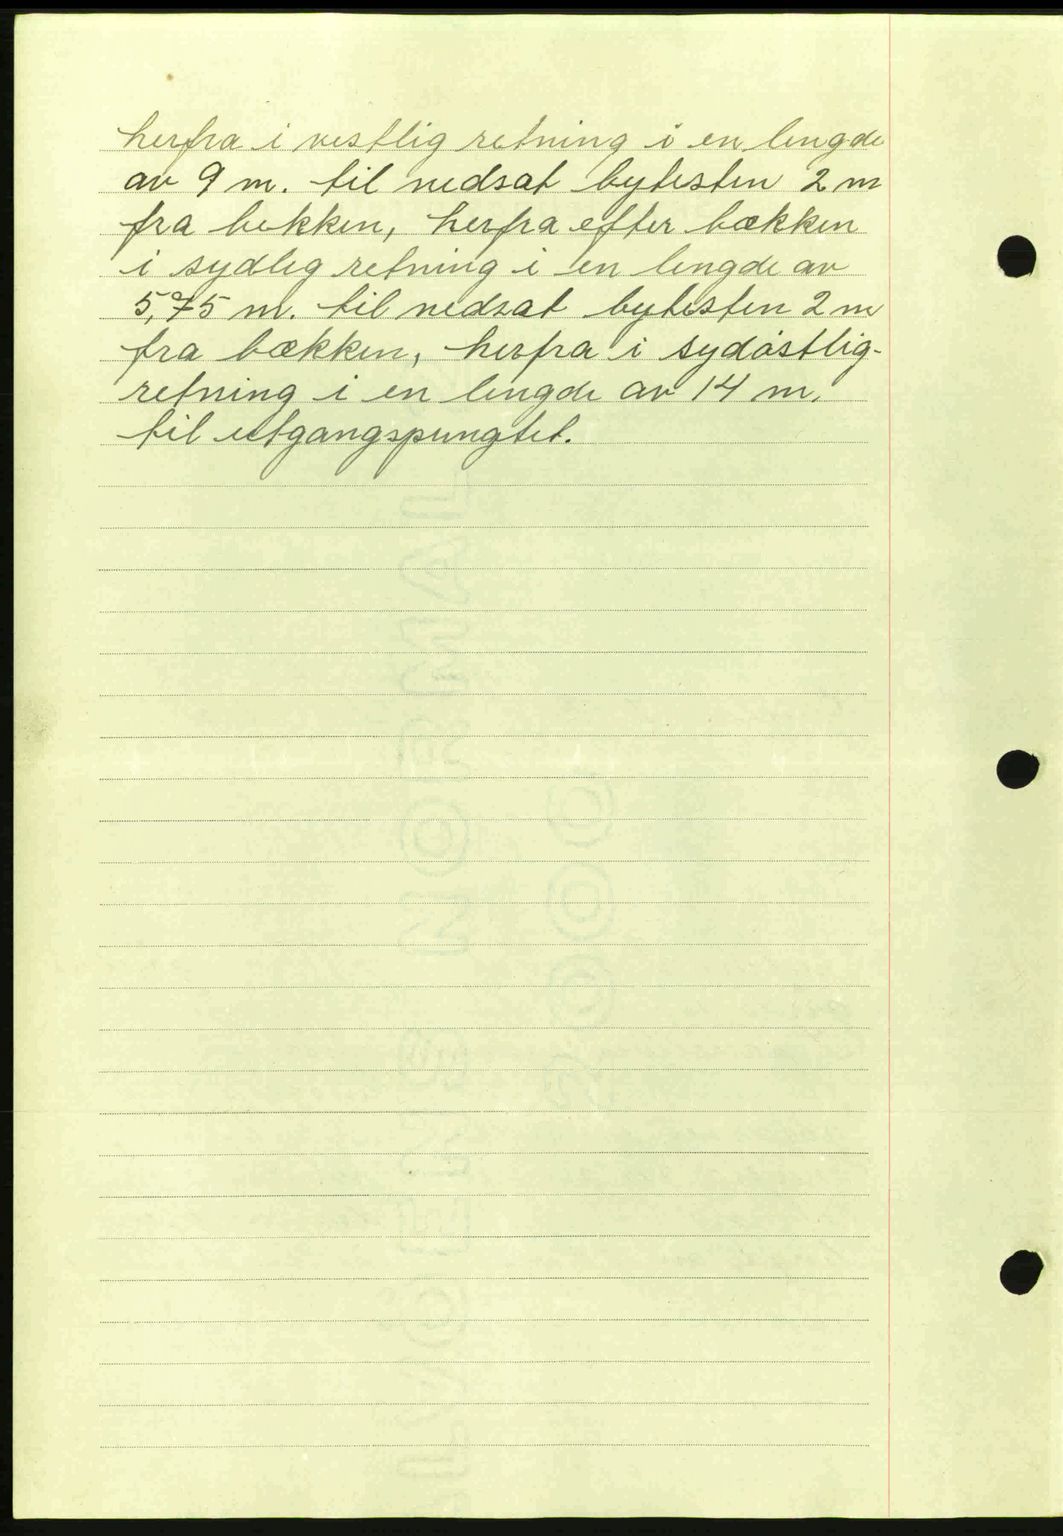 herfra i vestlig retning i en lengde
av 9 m. til nedsat bytesten 2 m
fra bekken, herfra efter bækken
i sydlig retning i en lengde av
5,75 m. til nedsat bytesten 2 m
fra bækken, herfra i sydøstlig-
retning i en lengde av 14 m.
til utgangspungtet.